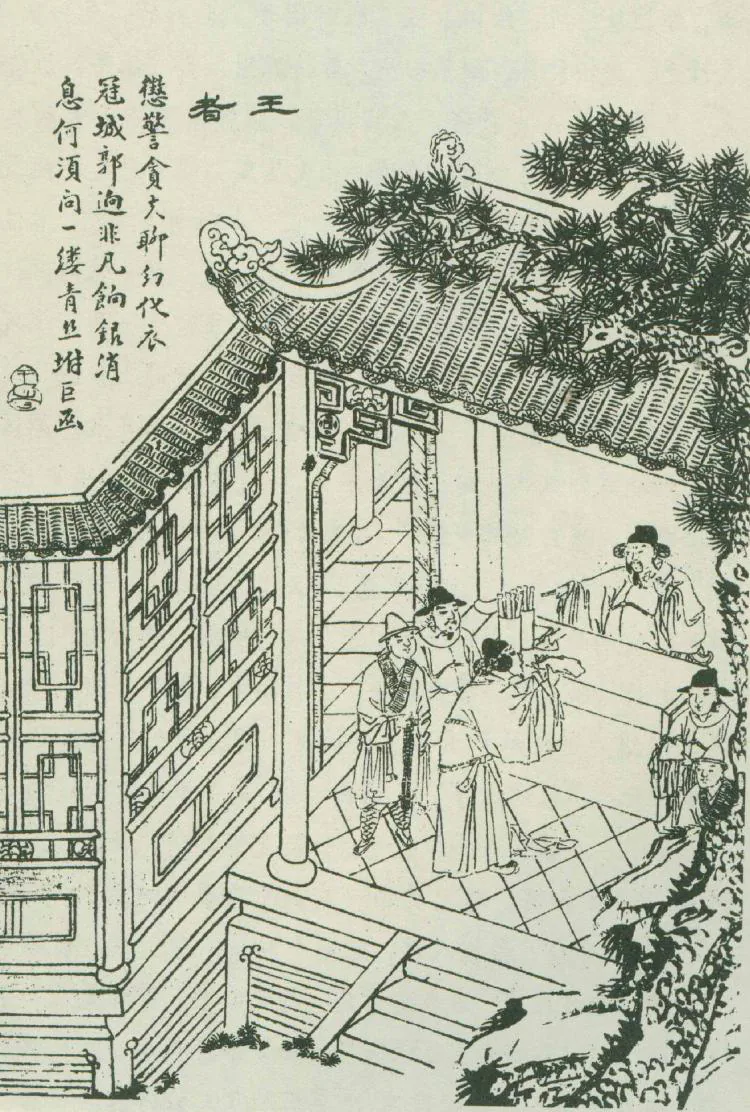 王者
懲警貪夫聊幻化衣
冠城郭逈非凡餉銀消
息何湏問一縷青丝坿巨函